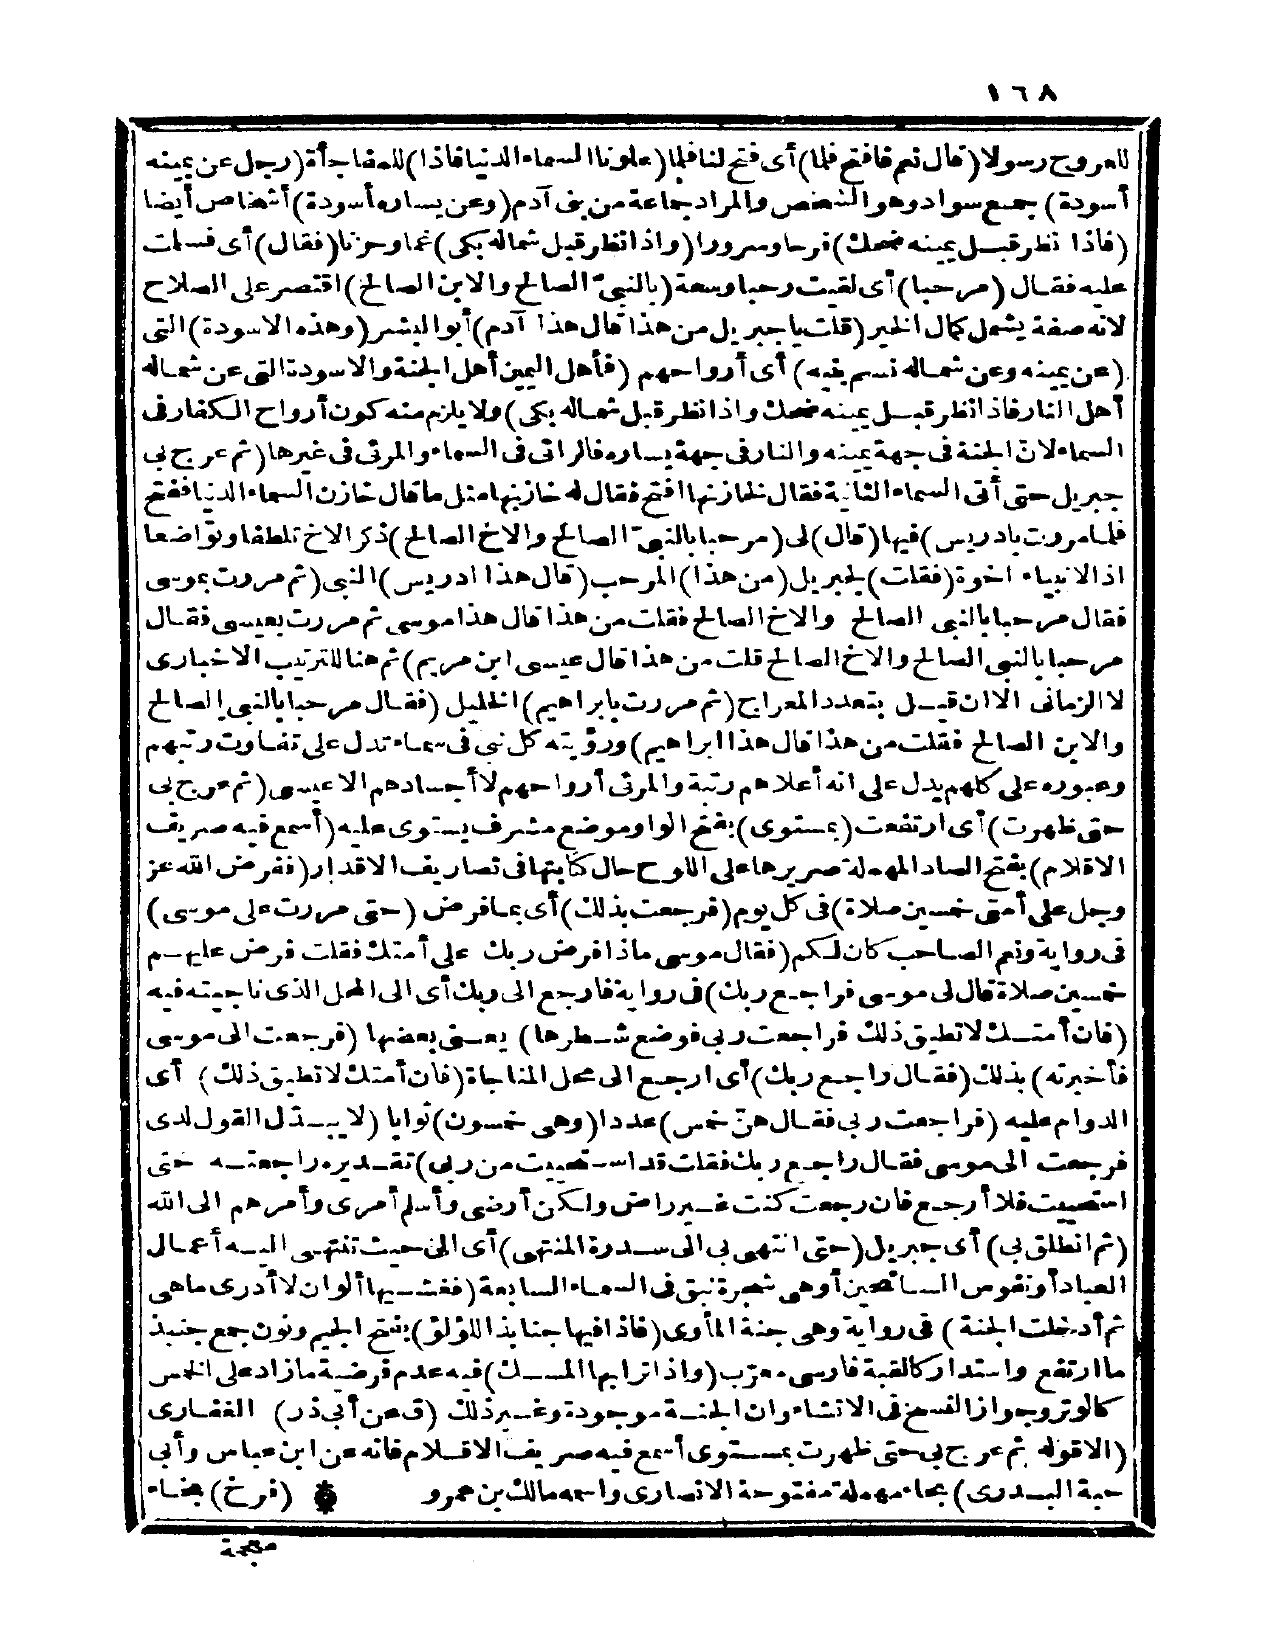 ١٦٨
للعروج رسولا (قال نعم فافتح فلما) أى فتح لنا فلما (علونا السماء الدنيا فاذا) للمفاجأة (رجل عن يمينه
أسودة) جمع سواد وهو الشخص والمراد جماعة من بنى آدم (وعن يساره أسودة) أشخاص أيضا
(فاذا نظر قبل يمينه ضحك) فرحا وسرورا (واذا نظر قبل شماله بكى) غما وحزنا (فقال) أى فسلمت
عليه فقال (مرحبا) أى لقيت رحبا وسعة (بالنبىّ الصالح والابن الصالح) اقتصر على الصلاح
لانه صفة يشمل كمال الخير (قلت يا جبريل من هذا قال هذا آدم) أبو البشر (وهذه الاسودة) التى
(عن يمينه وعن شماله نسم بنيه) أى أرواحهم (فأهل اليمين أهل الجنة والاسودة التى عن شماله
أهل النار فاذا نظر قبل يمينه ضحك واذا نظر قبل شماله بكى) ولا يلزم منه كون أرواح الكفار فى
السماء لان الجنة فى جهة يمينه والنار فى جهة يساره فالرائى فى السماء والمرئى فى غيرها (ثم عرج بى
جبريل حتى أتى السماء الثانية فقال لخازنها افتح فقال له خازنها مثل ما قال خازن السماء الدنيا ففتح
فلما مررت بادريس) فيها (قال) لى (مرحبا بالنبىّ الصالح والاخ الصالح) ذكر الاخ تلطفا وتواضعا
اذ الانبياء اخوة (فقلت) لجبريل (من هذا) المرحب (قال هذا ادريس) النبى (ثم مررت بموسى
فقال مرحبا بالنبى الصالح والاخ الصالح فقلت من هذا قال هذا موسى ثم مررت بعيسى فقال
مرحبا بالنبى الصالح والاخ الصالح قلت من هذا قال عيسى ابن مريم) ثم هنا للترتيب الاخبارى
لا الزمانى الا ان قيل بتعدد المعراج (ثم مررت بابراهيم) الخليل (فقال مرحبا بالنبى الصالح
والابن الصالح فقلت من هذا قال هذا ابراهيم) ورؤيته كل نبى فى سماء تدل على تفاوت رتبهم
وعبوره على كلهم يدل على انه أعلاهم رتبة والمرئى أرواحهم لا أجسادهم الا عيسى (ثم عرج بى
حتى ظهرت) أى ارتفعت (بمستوى) بفتح الواو موضع مشرف يستوى عليه (أسمع فيه صريف
الاقلام) بفتح الصاد المهملة صريرها على اللوح حال كتابتها فى تصاريف الاقدار (ففرض الله عز
وجل على أمتى خمسين صلاة) فى كل يوم (فرجعت بذلك) أى بما فرض (حتى مررت على موسى)
فى رواية ونعم الصاحب كان لكم (فقال موسى ماذا فرض ربك على أمتك فقلت فرض عليهم
خمسين صلاة قال لى موسى فراجع ربك) فى رواية فارجع الى ربك أى الى المحل الذى ناجيته فيه
(فان أمتك لا تطيق ذلك فراجعت ربى فوضع شطرها) يعنى بعضها (فرجعت الى موسى
فأخبرته) بذلك (فقال راجع ربك) أى ارجع الى محل المناجاة (فان أمتك لا تطيق ذلك) أى
الدوام عليه (فراجعت ربى فقال هنّ خمس) عددا (وهى خمسون) ثوابا (لا يبدّل القول لدى
فرجعت الى موسى فقال راجع ربك فقلت قد استحييت من ربى) تقديره راجعته حتى
استحييت فلا أرجع فان رجعت كنت غير راض ولكن أرضى وأسلم أمرى وأمرهم الى الله
(ثم انطلق بى) أى جبريل (حتى انتهى بى الى سدرة المنتهى) أى الى حيث تنتهى اليه أعمال
العباد أو نفوس السائحين أو هى شجرة نبق فى السماء السابعة (فغشيها ألوان لا أدرى ما هى
ثم أدخلت الجنة) فى رواية وهى جنة المأوى (فاذا فيها جنابذ اللؤلؤ) بفتح الجيم ونون جمع جنبذ
ما ارتفع واستدار كالقبة فارسى معرّب (واذا ترابها المسك) فيه عدم فرضية ما زاد على الخمس
كالوتر وجواز النسخ فى الانشاء وان الجنة موجودة وغير ذلك (ق عن أبى ذر) الغفارى
(الا قوله ثم عرج بى حتى ظهرت بمستوى أسمع فيه صريف الاقلام فانه عن ابن عباس وأبى
حبة البدرى) بحاء مهملة مفتوحة الانصارى واسمه مالك بن عمرو (فرخ) بخاء
معجمة